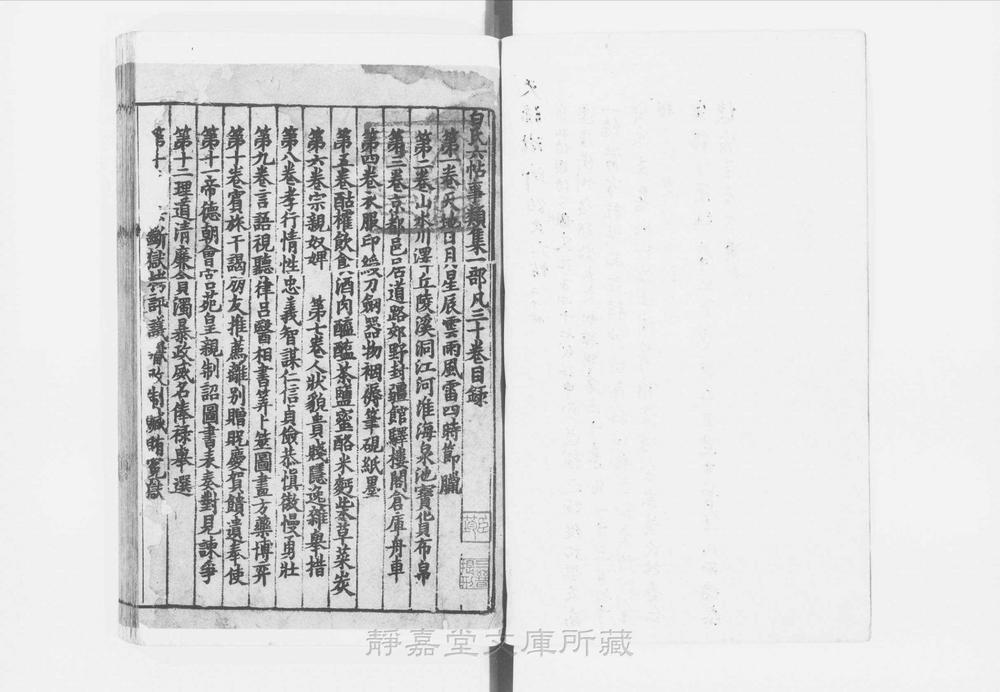 白氏六帖事類集一部凡三十卷目録
第一卷天地日月星辰雲雨風雷四時節臘
第二卷山水川澤丘陵溪洞江河淮海泉池寶貨布帛
第三卷京都邑居道路郊野封疆館驛樓閣倉庫舟車
第四卷衣服印綬刀劒器物裀褥筆硯紙墨
第五卷酤榷飲食酒肉醯醢茶鹽蜜酪米麪柴草菜炭
第六卷宗親奴婢 第七卷人狀貌貴賤隱逸雜舉措
第八卷孝行情性忠義智謀仁信貞儉恭慎傲慢勇壯
第九卷言語視聽律吕醫相書筭卜筮圖畫方藥博弈
第十卷賓旅干謁朋友推薦離別贈貺慶賀饋遺奉使
第十一帝德朝會宮苑皇親制詔圖書表奏對見諫爭
第十二理道清廉貪濁暴政威名俸禄舉選
第十 斷獄 評議 制贓賄寃獄
靜嘉堂文庫所藏